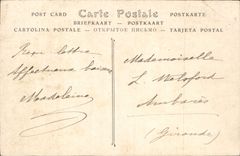 POST CARD Carte Postale POSTKARTE
BRIEFKAART — POSTKAART
CARTOLINA POSTALE — ОТКРЫТОЕ ПИСЬМО — TARJETA POSTAL
lettre
Affectueux baisers
Madeleine
Mademoiselle
L
Ambarès
(Gironde)